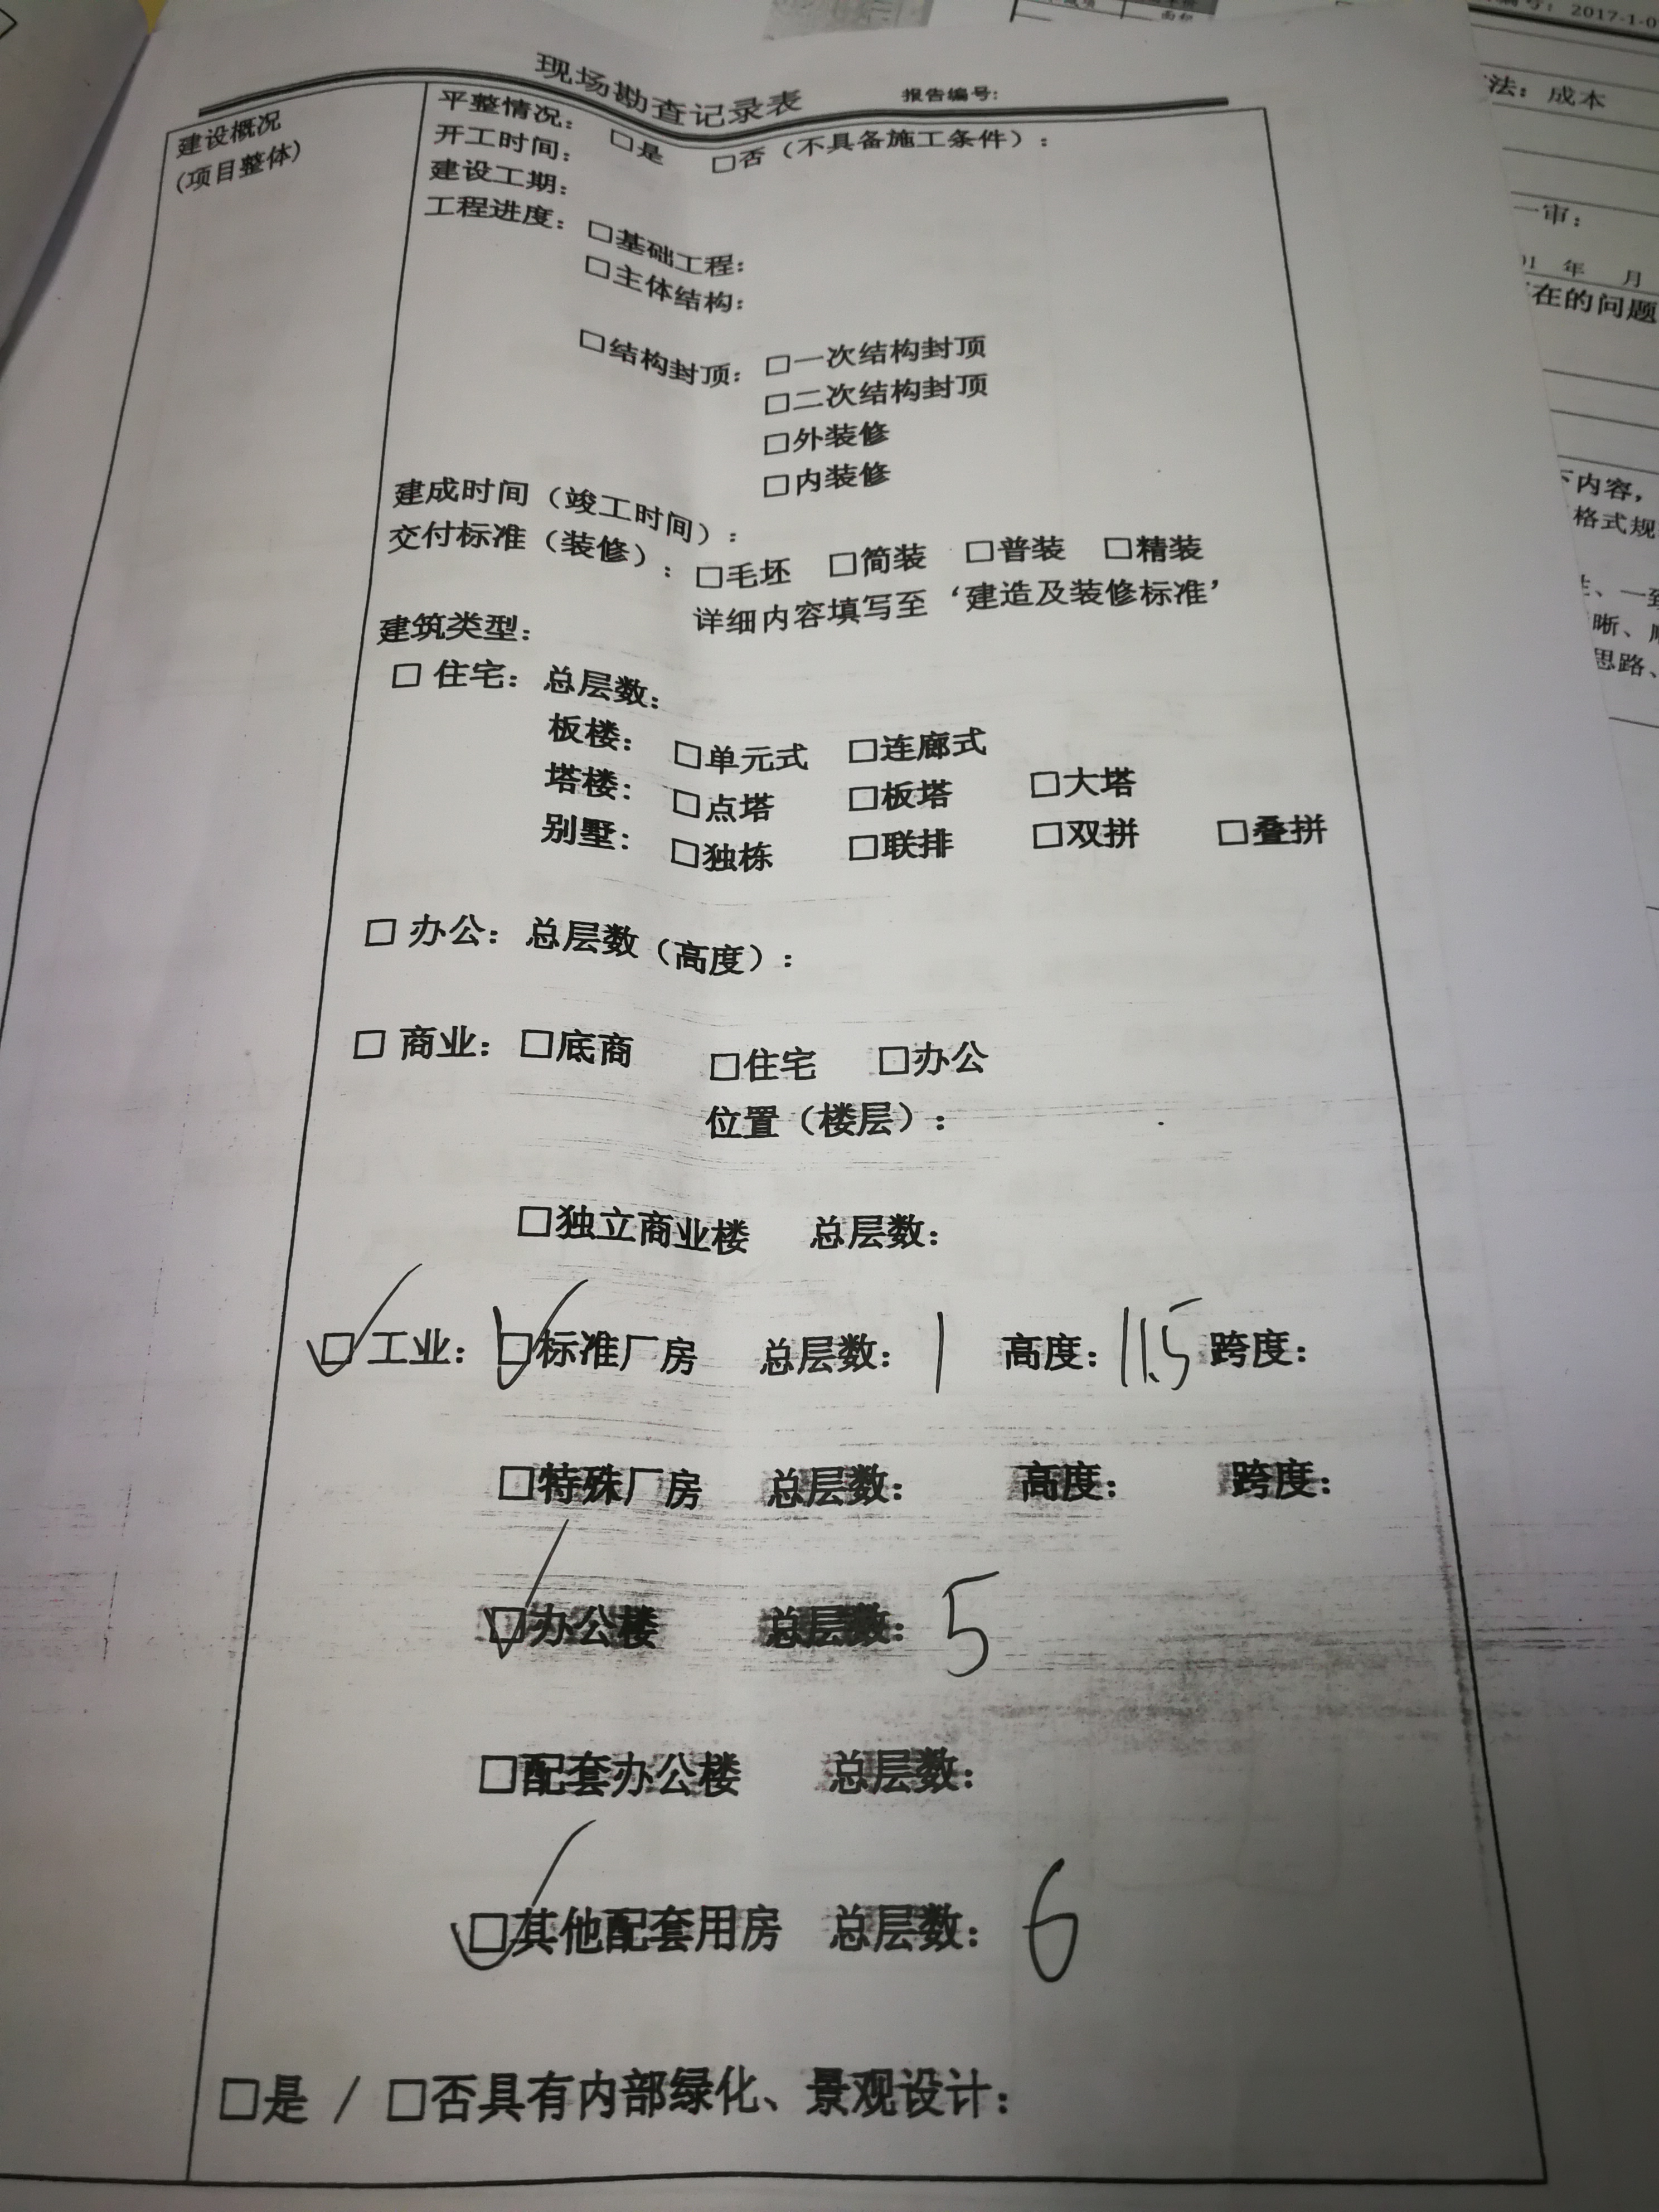 现场勘查记录表 报告编号:
建设概况
(项目整体)
平整情况: □是 □否（不具备施工条件）:
开工时间:
建设工期:
工程进度: □基础工程:
□主体结构:
□结构封顶: □一次结构封顶
□二次结构封顶
□外装修
□内装修
建成时间（竣工时间）:
交付标准（装修）: □毛坯 □简装 □普装 □精装
详细内容填写至‘建造及装修标准’
建筑类型:
□ 住宅: 总层数:
板楼: □单元式 □连廊式
塔楼: □点塔 □板塔 □大塔
别墅: □独栋 □联排 □双拼 □叠拼
□ 办公: 总层数（高度）:
□ 商业: □底商 □住宅 □办公
位置（楼层）:
□独立商业楼 总层数:
☑ 工业: ☑标准厂房 总层数: 1 高度: 11.5 跨度:
□特殊厂房 总层数: 高度: 跨度:
☑办公楼 总层数: 5
□配套办公楼 总层数:
☑其他配套用房 总层数: 6
□是 / □否具有内部绿化、景观设计:
编号: 2017-1-0
法: 成本
一审:
01 年 月
在的问题
下内容,
格式规
、一致
晰、
思路、